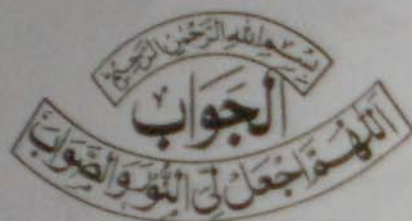 بِسْمِ اللهِ الرَّحْمٰنِ الرَّحِيْمِ
الجَوَابُ
اَللّٰهُمَّ اجْعَلْ لِي النُّوْرَ وَالصَّوَابَ